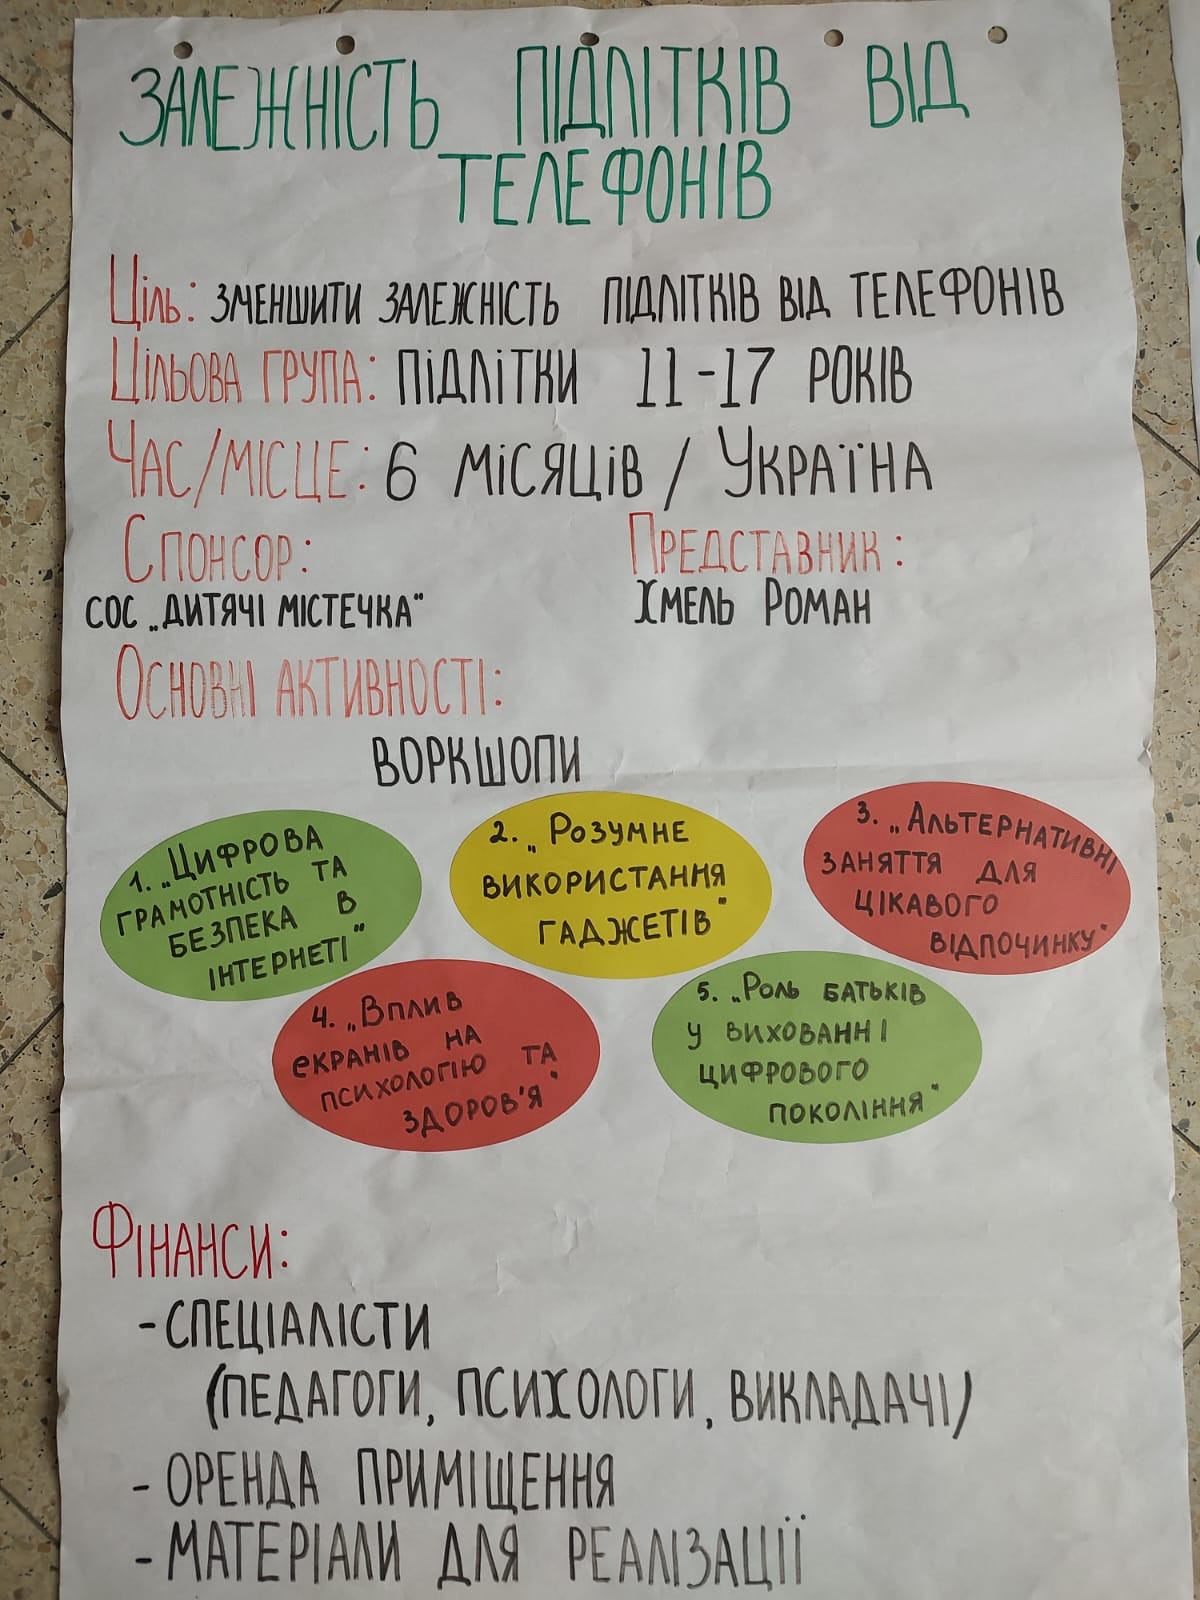 ЗАЛЕЖНІСТЬ ПІДЛІТКІВ ВІД
ТЕЛЕФОНІВ
Ціль: ЗМЕНШИТИ ЗАЛЕЖНІСТЬ ПІДЛІТКІВ ВІД ТЕЛЕФОНІВ
ЦІЛЬОВА ГРУПА: ПІДЛІТКИ 11-17 РОКІВ
ЧАС/МІСЦЕ: 6 МІСЯЦІВ / УКРАЇНА
СПОНСОР:
СОС „ДИТЯЧІ МІСТЕЧКА"
ПРЕДСТАВНИК:
ХМЕЛЬ РОМАН
ОСНОВНІ АКТИВНОСТІ:
ВОРКШОПИ
1. „ЦИФРОВА
ГРАМОТНІСТЬ ТА
БЕЗПЕКА В
ІНТЕРНЕТІ"
2. „РОЗУМНЕ
ВИКОРИСТАННЯ
ГАДЖЕТІВ"
3. „АЛЬТЕРНАТИВНІ
ЗАНЯТТЯ ДЛЯ
ЦІКАВОГО
ВІДПОЧИНКУ"
4. „ВПЛИВ
ЕКРАНІВ НА
ПСИХОЛОГІЮ ТА
ЗДОРОВ'Я"
5. „РОЛЬ БАТЬКІВ
У ВИХОВАННІ
ЦИФРОВОГО
ПОКОЛІННЯ"
ФІНАНСИ:
- СПЕЦІАЛІСТИ
(ПЕДАГОГИ, ПСИХОЛОГИ, ВИКЛАДАЧІ)
- ОРЕНДА ПРИМІЩЕННЯ
- МАТЕРІАЛИ ДЛЯ РЕАЛІЗАЦІЇ